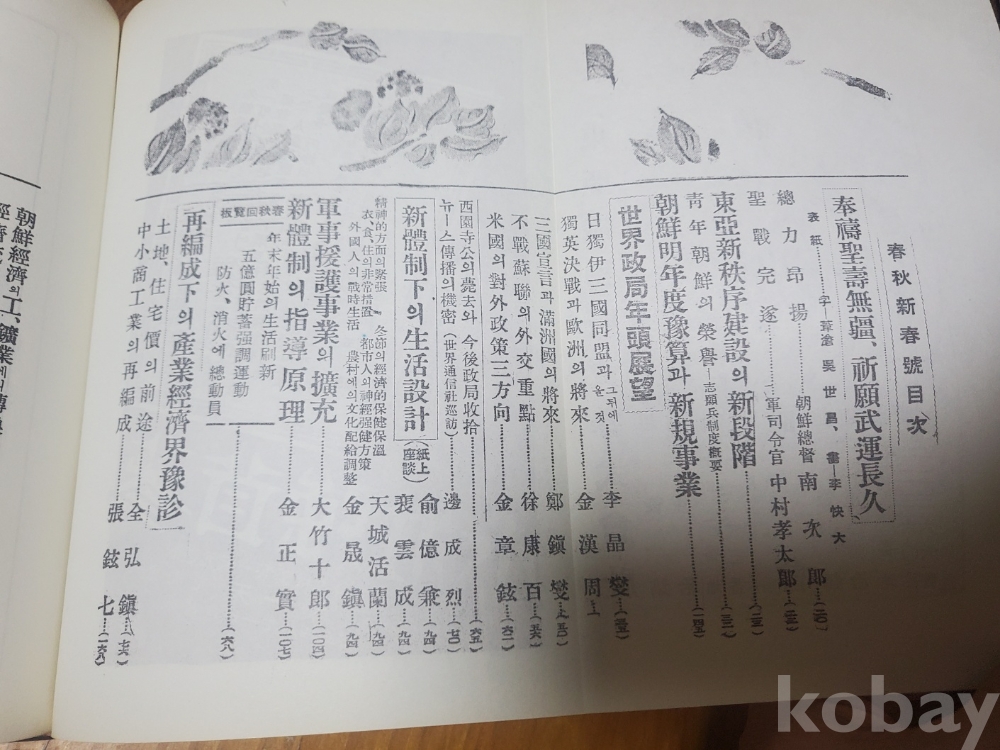 春秋新春號目次
奉禱聖壽無疆、祈願武運長久
表紙……字—葦滄 吳世昌、畵 李快大
總力昂揚……朝鮮總督 南次郞…(二〇)
聖戰完遂……軍司令官 中村孝太郞…(二三)
東亞新秩序建設의 新段階……(二五)
靑年朝鮮의 榮譽—志願兵制度槪要……(三二)
朝鮮明年度豫算과 新規事業……(四五)
世界政局年頭展望
日獨伊三國同盟과 그 뒤에 오는 것……李晶燮…
獨英決戰과 歐洲의 將來……金漢周
三國宣言과 滿洲國의 將來……鄭鎭燮
不戰蘇聯의 外交重點……徐康百…(五六)
米國의 對外政策三方向……金章鉉…(六一)
西園寺公의 薨去와 今後政局收拾……(六五)
뉴ー스傳播의 機密(世界通信社巡訪)……邊成烈…(七〇)
新體制下의 生活設計(紙上座談)
兪億兼…(九四)
裵雲成…(九四)
天城活蘭…(九四)
金晟鎭…(九四)
精神的方面의 緊張
衣、食、住의 非常措置
外國人의 戰時生活
冬節의 經濟的保健保溫
都市人의 神經强健方策
農村에의 文化配給調整
軍事援護事業의 擴充……大竹十郞…(一〇四)
新體制의 指導原理……金正實…(一〇七)
春秋回覽板
年末年始의 生活刷新
五億圓貯蓄强調運動
防火、消火에 總動員
(六八)
再編成下의 產業經濟界豫診
土地、住宅價의 前途……全弘鎭
中小商工業의 再編成……張鉉七
朝鮮經濟의 工、鑛業에의
kobay